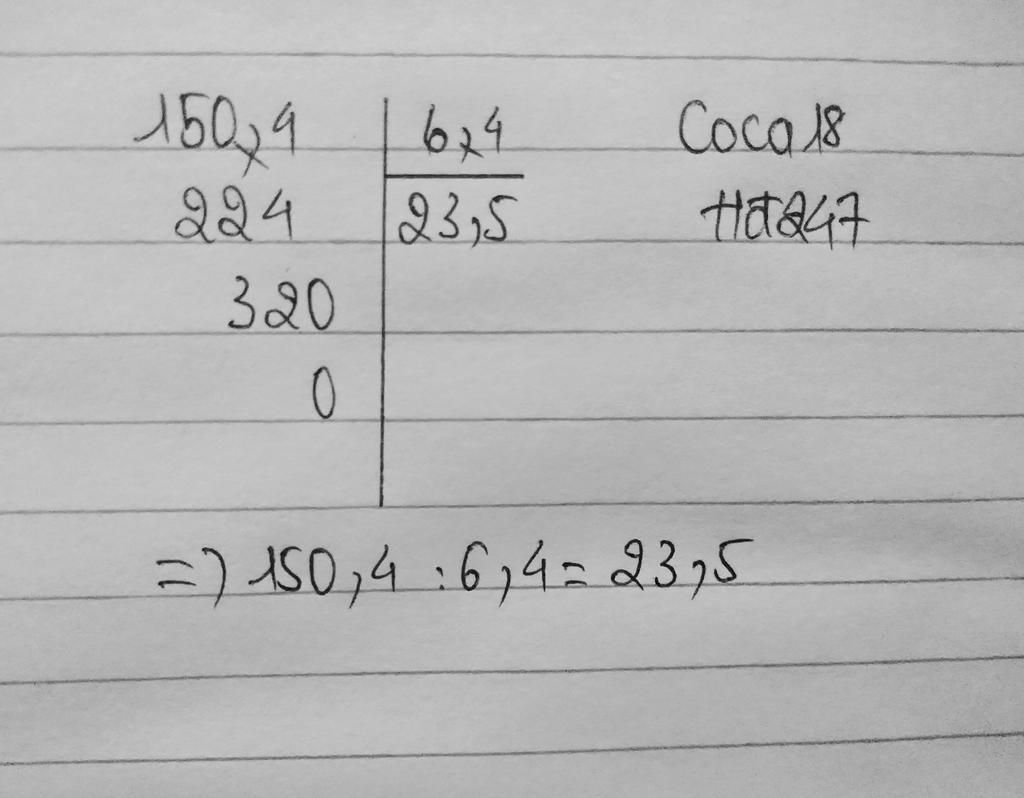 150,4 6,4 Coca18
224 23,5 Hd247
320
0
=> 150,4 : 6,4 = 23,5